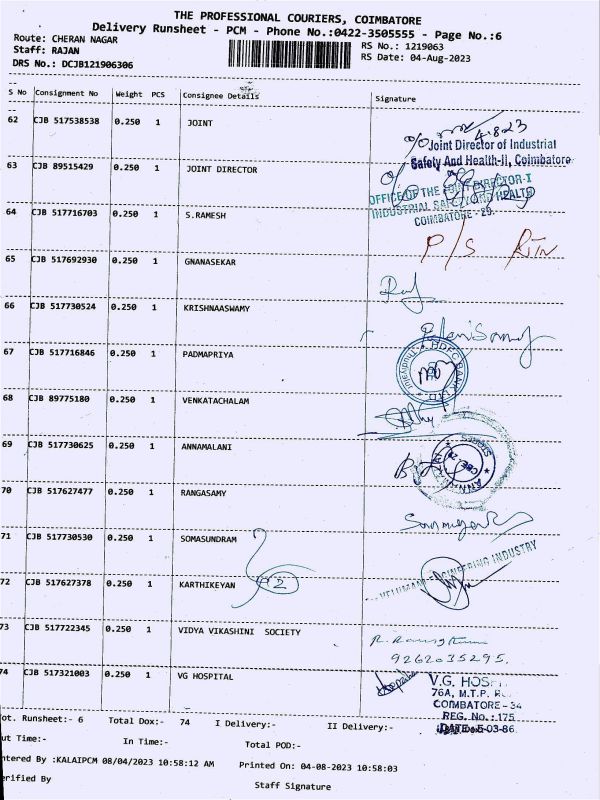 THE PROFESSIONAL COURIERS, COIMBATORE
Delivery Runsheet - PCM - Phone No.:0422-3505555 - Page No.:6
Route: CHERAN NAGAR RS No.: 1219063
Staff: RAJAN RS Date: 04-Aug-2023
DRS No.: DCJB121906306
S No Consignment No Weight PCS Consignee Details Signature
62 CJB 517538538 0.250 1 JOINT
4.8.23
Joint Director of Industrial
Safety And Health-II, Coimbatore
63 CJB 89515429 0.250 1 JOINT DIRECTOR
OFFICE OF THE JOINT DIRECTOR-I
INDUSTRIAL SAFETY AND HEALTH
COIMBATORE - 29.
64 CJB 517716703 0.250 1 S.RAMESH
P/S RTN
65 CJB 517692930 0.250 1 GNANASEKAR
66 CJB 517730524 0.250 1 KRISHNAASWAMY
67 CJB 517716846 0.250 1 PADMAPRIYA
HDFC BANK LTD
68 CJB 89775180 0.250 1 VENKATACHALAM
69 CJB 517730625 0.250 1 ANNAMALANI
CBE-29
70 CJB 517627477 0.250 1 RANGASAMY
71 CJB 517730530 0.250 1 SOMASUNDRAM
72 CJB 517627378 0.250 1 KARTHIKEYAN 2
ENGINEERING INDUSTRY
73 CJB 517722345 0.250 1 VIDYA VIKASHINI SOCIETY
9262035295.
74 CJB 517321003 0.250 1 VG HOSPITAL
V.G. HOSPI
76A, M.T.P. R
COIMBATORE - 34
REG. No.: 175
DATE: 5-03-86
ot. Runsheet:- 6 Total Dox:- 74 I Delivery:- II Delivery:-
ut Time:- In Time:- Total POD:-
ntered By :KALAIPCM 08/04/2023 10:58:12 AM Printed On: 04-08-2023 10:58:03
erified By Staff Signature